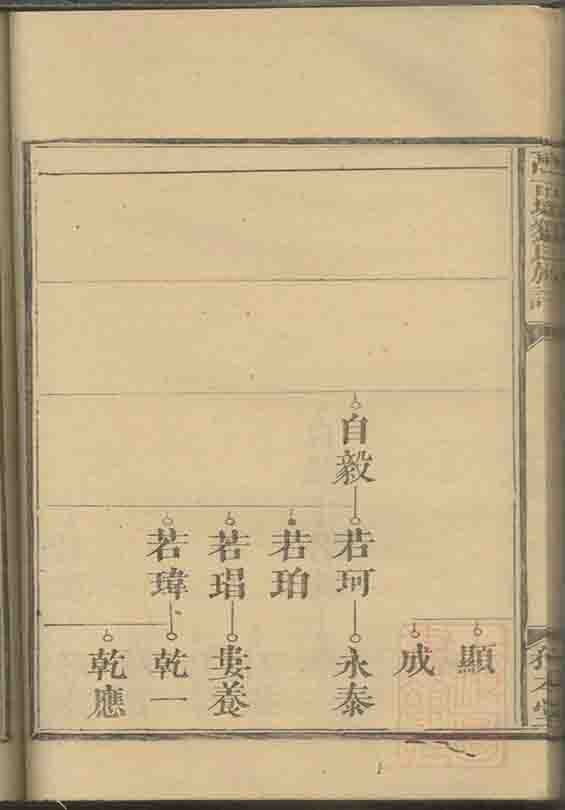 顯
成
自毅
若珂
永泰
若珀
若琩
養
若瑋
乾一
乾應